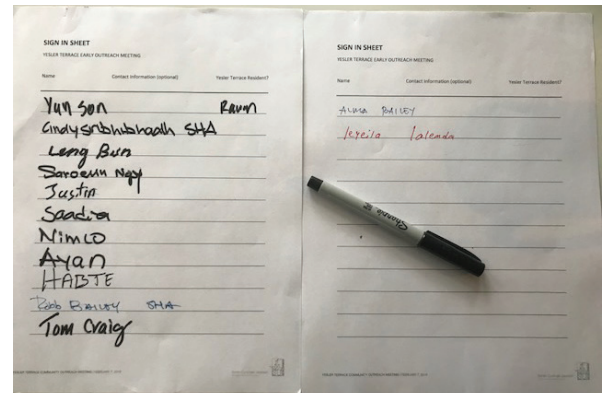 SIGN IN SHEET
YESLER TERRACE EARLY OUTREACH MEETING
Name Contact Information (optional) Yesler Terrace Resident?
Yun Son
Cindy SHA
Leng Bun
Saroeun Ngy
Justin
Saadia
Nimco
Ayan
HABTE
Robb BAILEY SHA
Tom Craig
YESLER TERRACE COMMUNITY OUTREACH MEETING FEBRUARY
SIGN IN SHEET
YESLER TERRACE EARLY OUTREACH MEETING
Name Contact Information (optional) Yesler Terrace Resident?
ALMA BAILEY
Sharpie
YESLER TERRACE COMMUNITY OUTREACH MEETING FEBRUARY